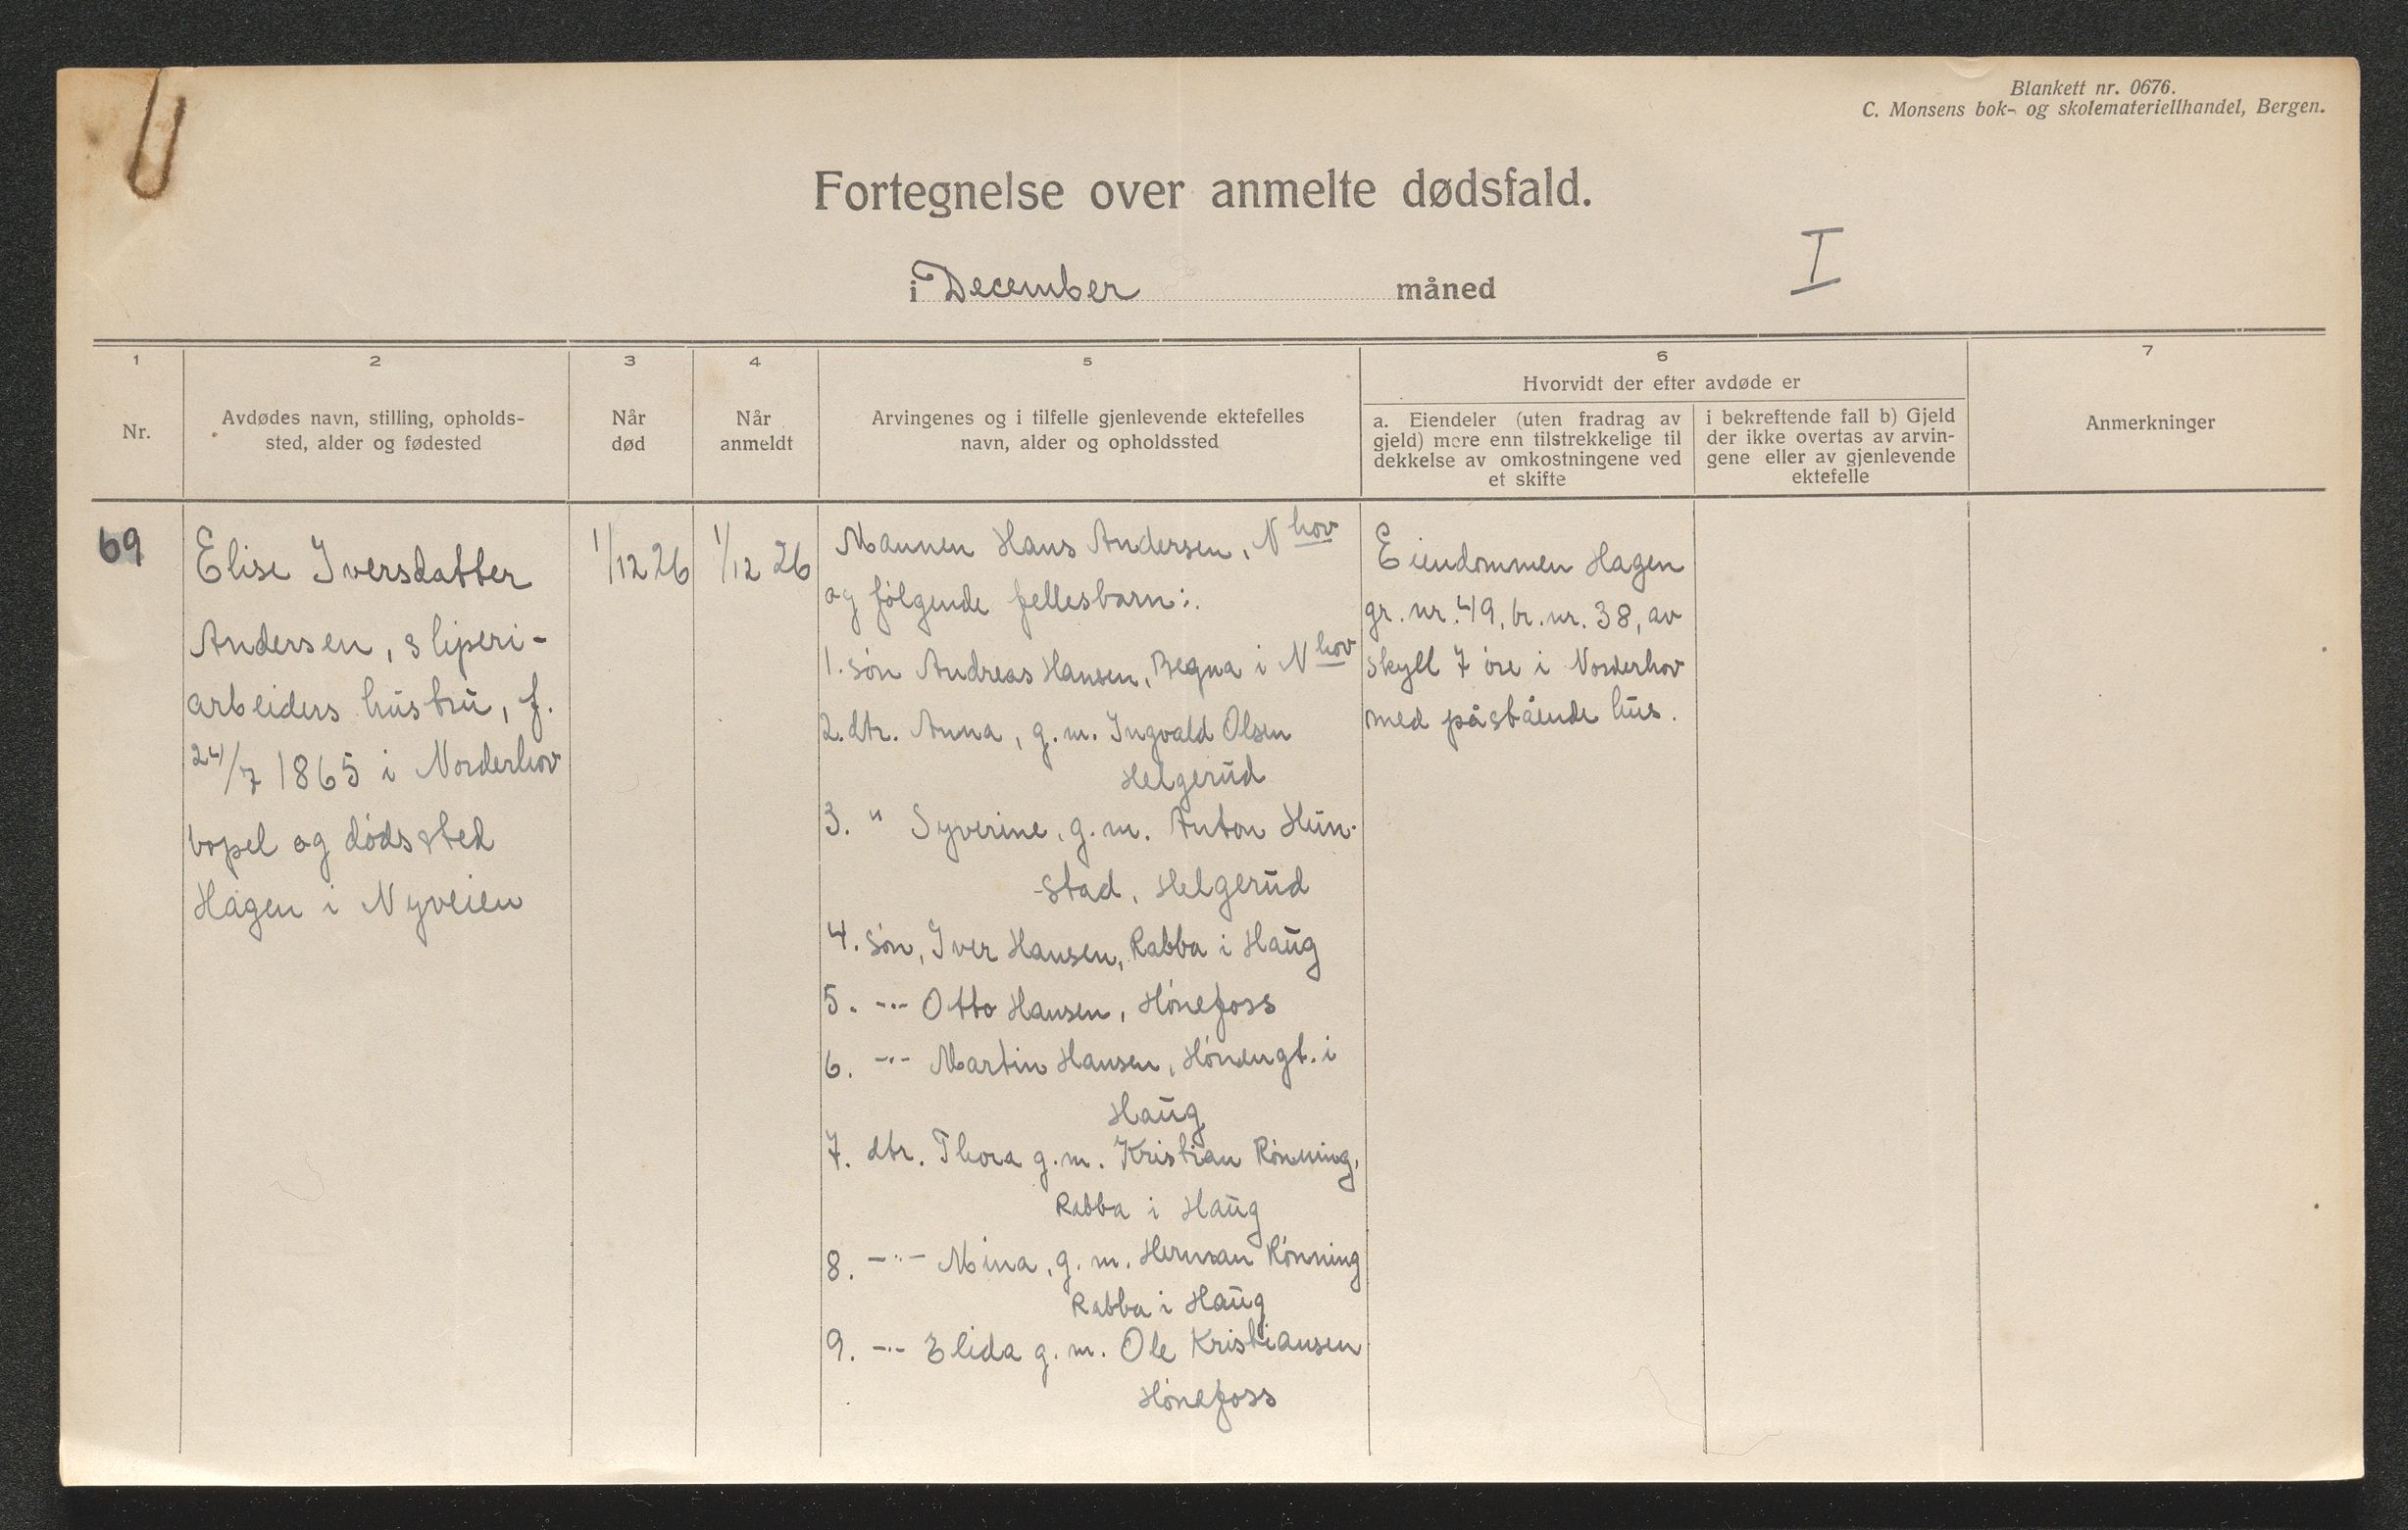 Blankett nr. 0676.
C. Monsens bok- og skolemateriellhandel, Bergen.
Fortegnelse over anmelte dødsfald.
i December måned
I
1
2
3
4
5
6
7
Nr.
Avdødes navn, stilling, opholds-
sted, alder og fødested
Når
død
Når
anmeldt
Arvingenes og i tilfelle gjenlevende ektefelles
navn, alder og opholdssted
Hvorvidt der efter avdøde er
a. Eiendeler (uten fradrag av
gjeld) mere enn tilstrekkelige til
dekkelse av omkostningene ved
et skifte
i bekreftende fall b) Gjeld
der ikke overtas av arvin-
gene eller av gjenlevende
ektefelle
Anmerkninger
69
Elise Iversdatter
Andersen, sliperi-
arbeiders hustru, f.
24/7 1865 i Norderhov
bopel og dødssted
Hagen i Nyveien
1/12 26
1/12 26
Mannen Hans Andersen, Nhov
og følgende fellesbarn:
1. søn Andreas Hansen, Begna i Nhov
2. dtr. Anna, g.m. Ingvald Olsen
Helgerud
3. " Syverine, g.m. Anton Hun-
-stad, Helgerud
4. søn, Iver Hansen, Rabba i Haug
5. -"- Otto Hansen, Hønefoss
6. -"- Martin Hansen, Hønengt. i
Haug
7. dtr. Thora g.m. Kristian Rønning,
Rabba i Haug
8. -"- Mina, g.m. Herman Rønning
Rabba i Haug
9. -"- Elida g.m. Ole Kristiansen
Hønefoss
Eiendommen Hagen
gr. nr. 49, br. nr. 38, av
skyll 7 øre i Norderhov
med påstående hus.